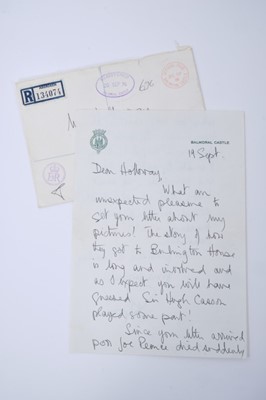 R
134074
BALMORAL CASTLE
19 Sept.
Dear Holloway,
What an
unexpected pleasure to
get your letter about my
pictures! The story of how
they got to Burlington House
is long and involved and
as I expect you will have
guessed Sir Hugh Casson
played some part!
Since your letter arrived
poor Joe Pearce died suddenly